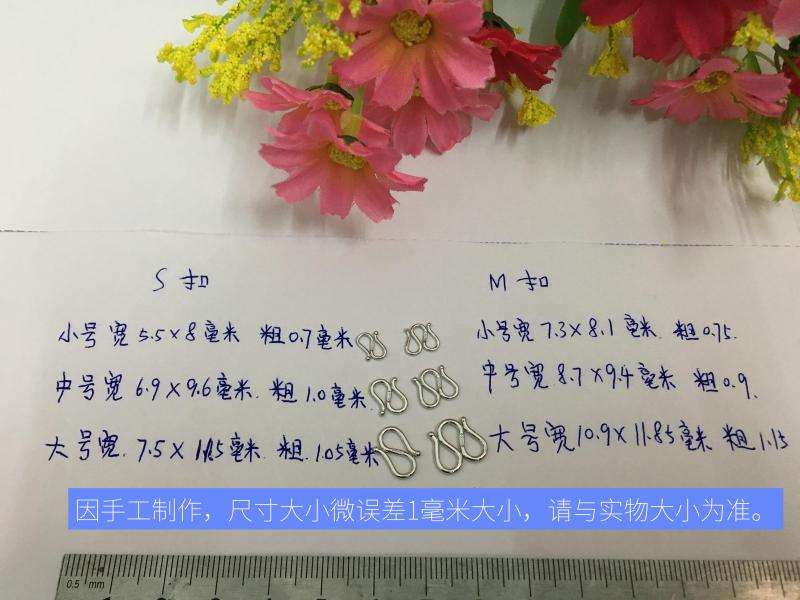 S 扣
小号宽 5.5×8毫米 粗0.7毫米
中号宽 6.9×9.6毫米. 粗 1.0毫米.
大号宽. 7.5× 毫米. 粗. 1.05毫米
M 扣
小号宽 7.3×8.1 毫米. 粗 0.75.
中号宽 8.7×9.4毫米 粗0.9.
大号宽10.9×11.85毫米 粗 1.15
因手工制作，尺寸大小微误差1毫米大小，请与实物大小为准。
0.5 mm